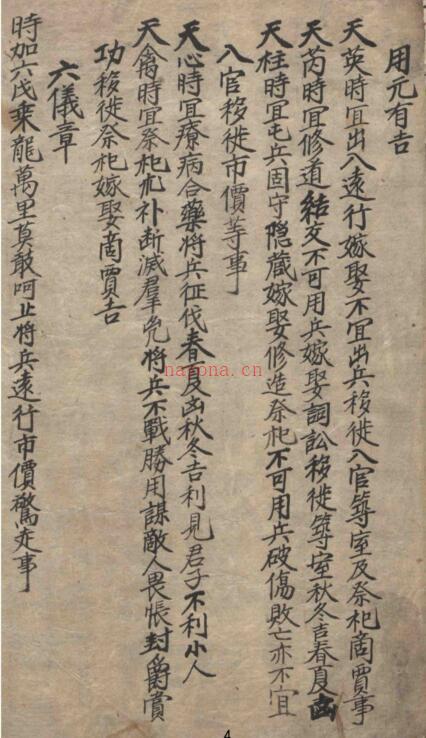 用元有吉
天英時宜出入遠行嫁娶不宜出兵移徙入官築室及祭祀啇賈事
天芮時宜修道結交不可用兵嫁娶詞訟移徙築室秋冬吉春夏凶
天柱時宜屯兵固守隐藏嫁娶修造祭祀不可用兵破傷敗亡亦不宜
入官移徙市價等事
天心時宜療病合藥將兵征伐春夏凶秋冬吉利見君子不利小人
天禽時宜祭祀 补断滅羣兇將兵不戰勝用謀敵人畏悵封爵賞
功移徙祭祀嫁娶啇賈吉
六儀章
時加六戊乘龍萬里莫敢呵止將兵遠行市價驚走事
nayona.cn
4